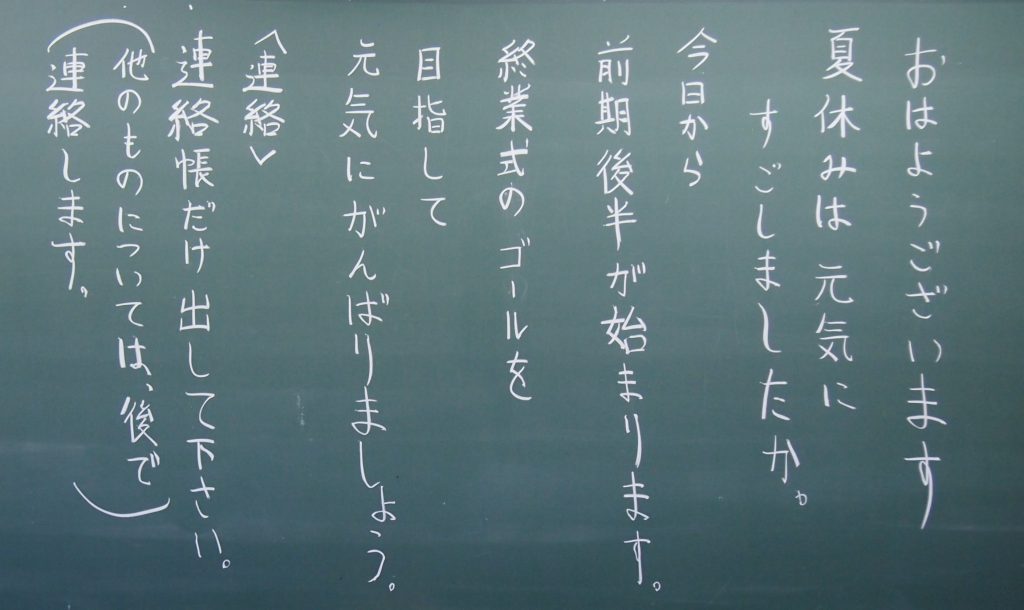 おはようございます
夏休みは元気に
すごしましたか。
今日から
前期後半が始まります。
終業式のゴールを
目指して
元気にがんばりましょう。
<連絡>
連絡帳だけ出して下さい。
(他のものについては、後で
連絡します。)